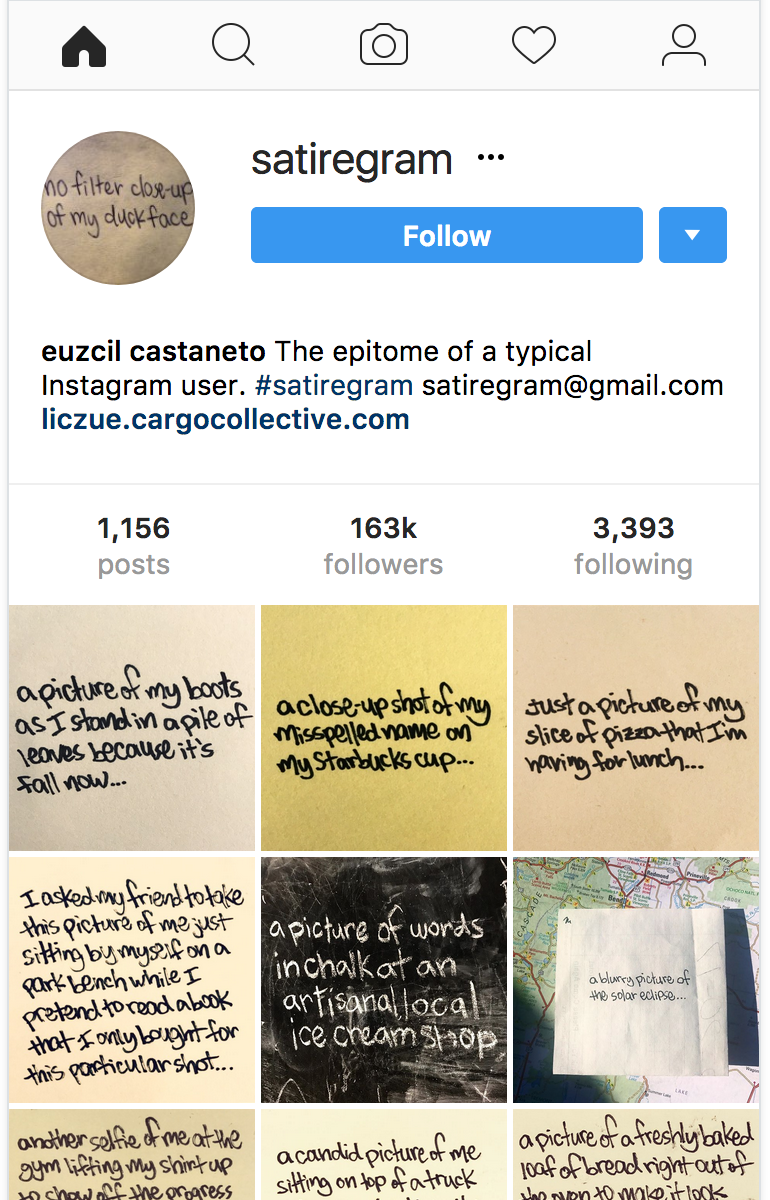 no filter close-up
of my duckface
satiregram ...
Follow
euzcil castaneto The epitome of a typical
Instagram user. #satiregram satiregram@gmail.com
liczue.cargocollective.com
1,156
posts
163k
followers
3,393
following
a picture of my boots
as I stand in a pile of
leaves because it's
fall now...
a close-up shot of my
misspelled name on
my Starbucks cup...
Just a picture of my
slice of pizza that I'm
having for lunch...
I asked my friend to take
this picture of me just
sitting by myself on a
park bench while I
pretend to read a book
that I only bought for
this particular shot...
a picture of words
in chalk at an
artisanal, local
ice cream shop
Redmond
Prineville
CASCADE
Bend
LAKE
a blurry picture of
the solar eclipse...
another selfie of me at the
gym lifting my shirt up
to show off the progress
a candid picture of me
sitting on top of a truck
a picture of a freshly baked
loaf of bread right out of
the oven to make it look